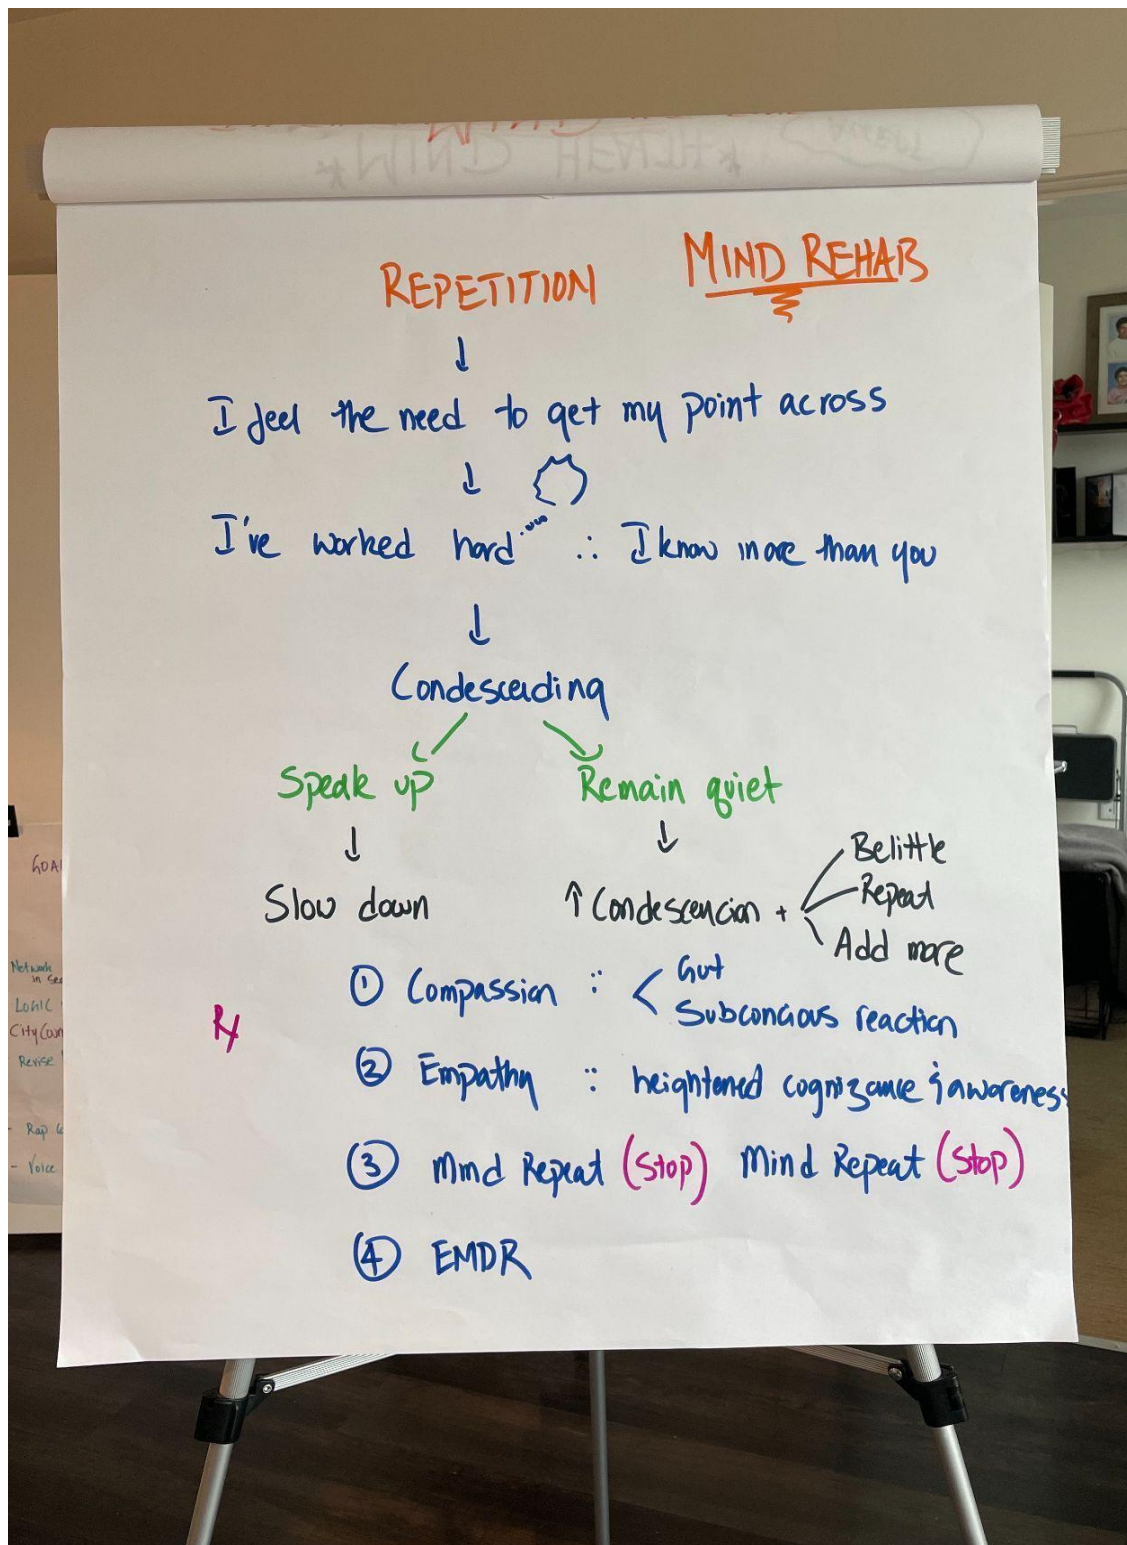 *MIND HEALTH*
REPETITION MIND REHAB
↓
I feel the need to get my point across
↓
I've worked hard .... ∴ I know more than you
↓
Condescending
Speak up Remain quiet
↓ ↓
Slow down ↑ Condescencion + Belittle
Repeat
Add more
① Compassion :: < Gut
Subconcious reaction
Rx
② Empathy :: heightened cognizance & awareness
③ Mind Repeat (Stop) Mind Repeat (Stop)
④ EMDR
GOA
Network
in
LOGIC
City Coun
Revise
- Rap
- Voice